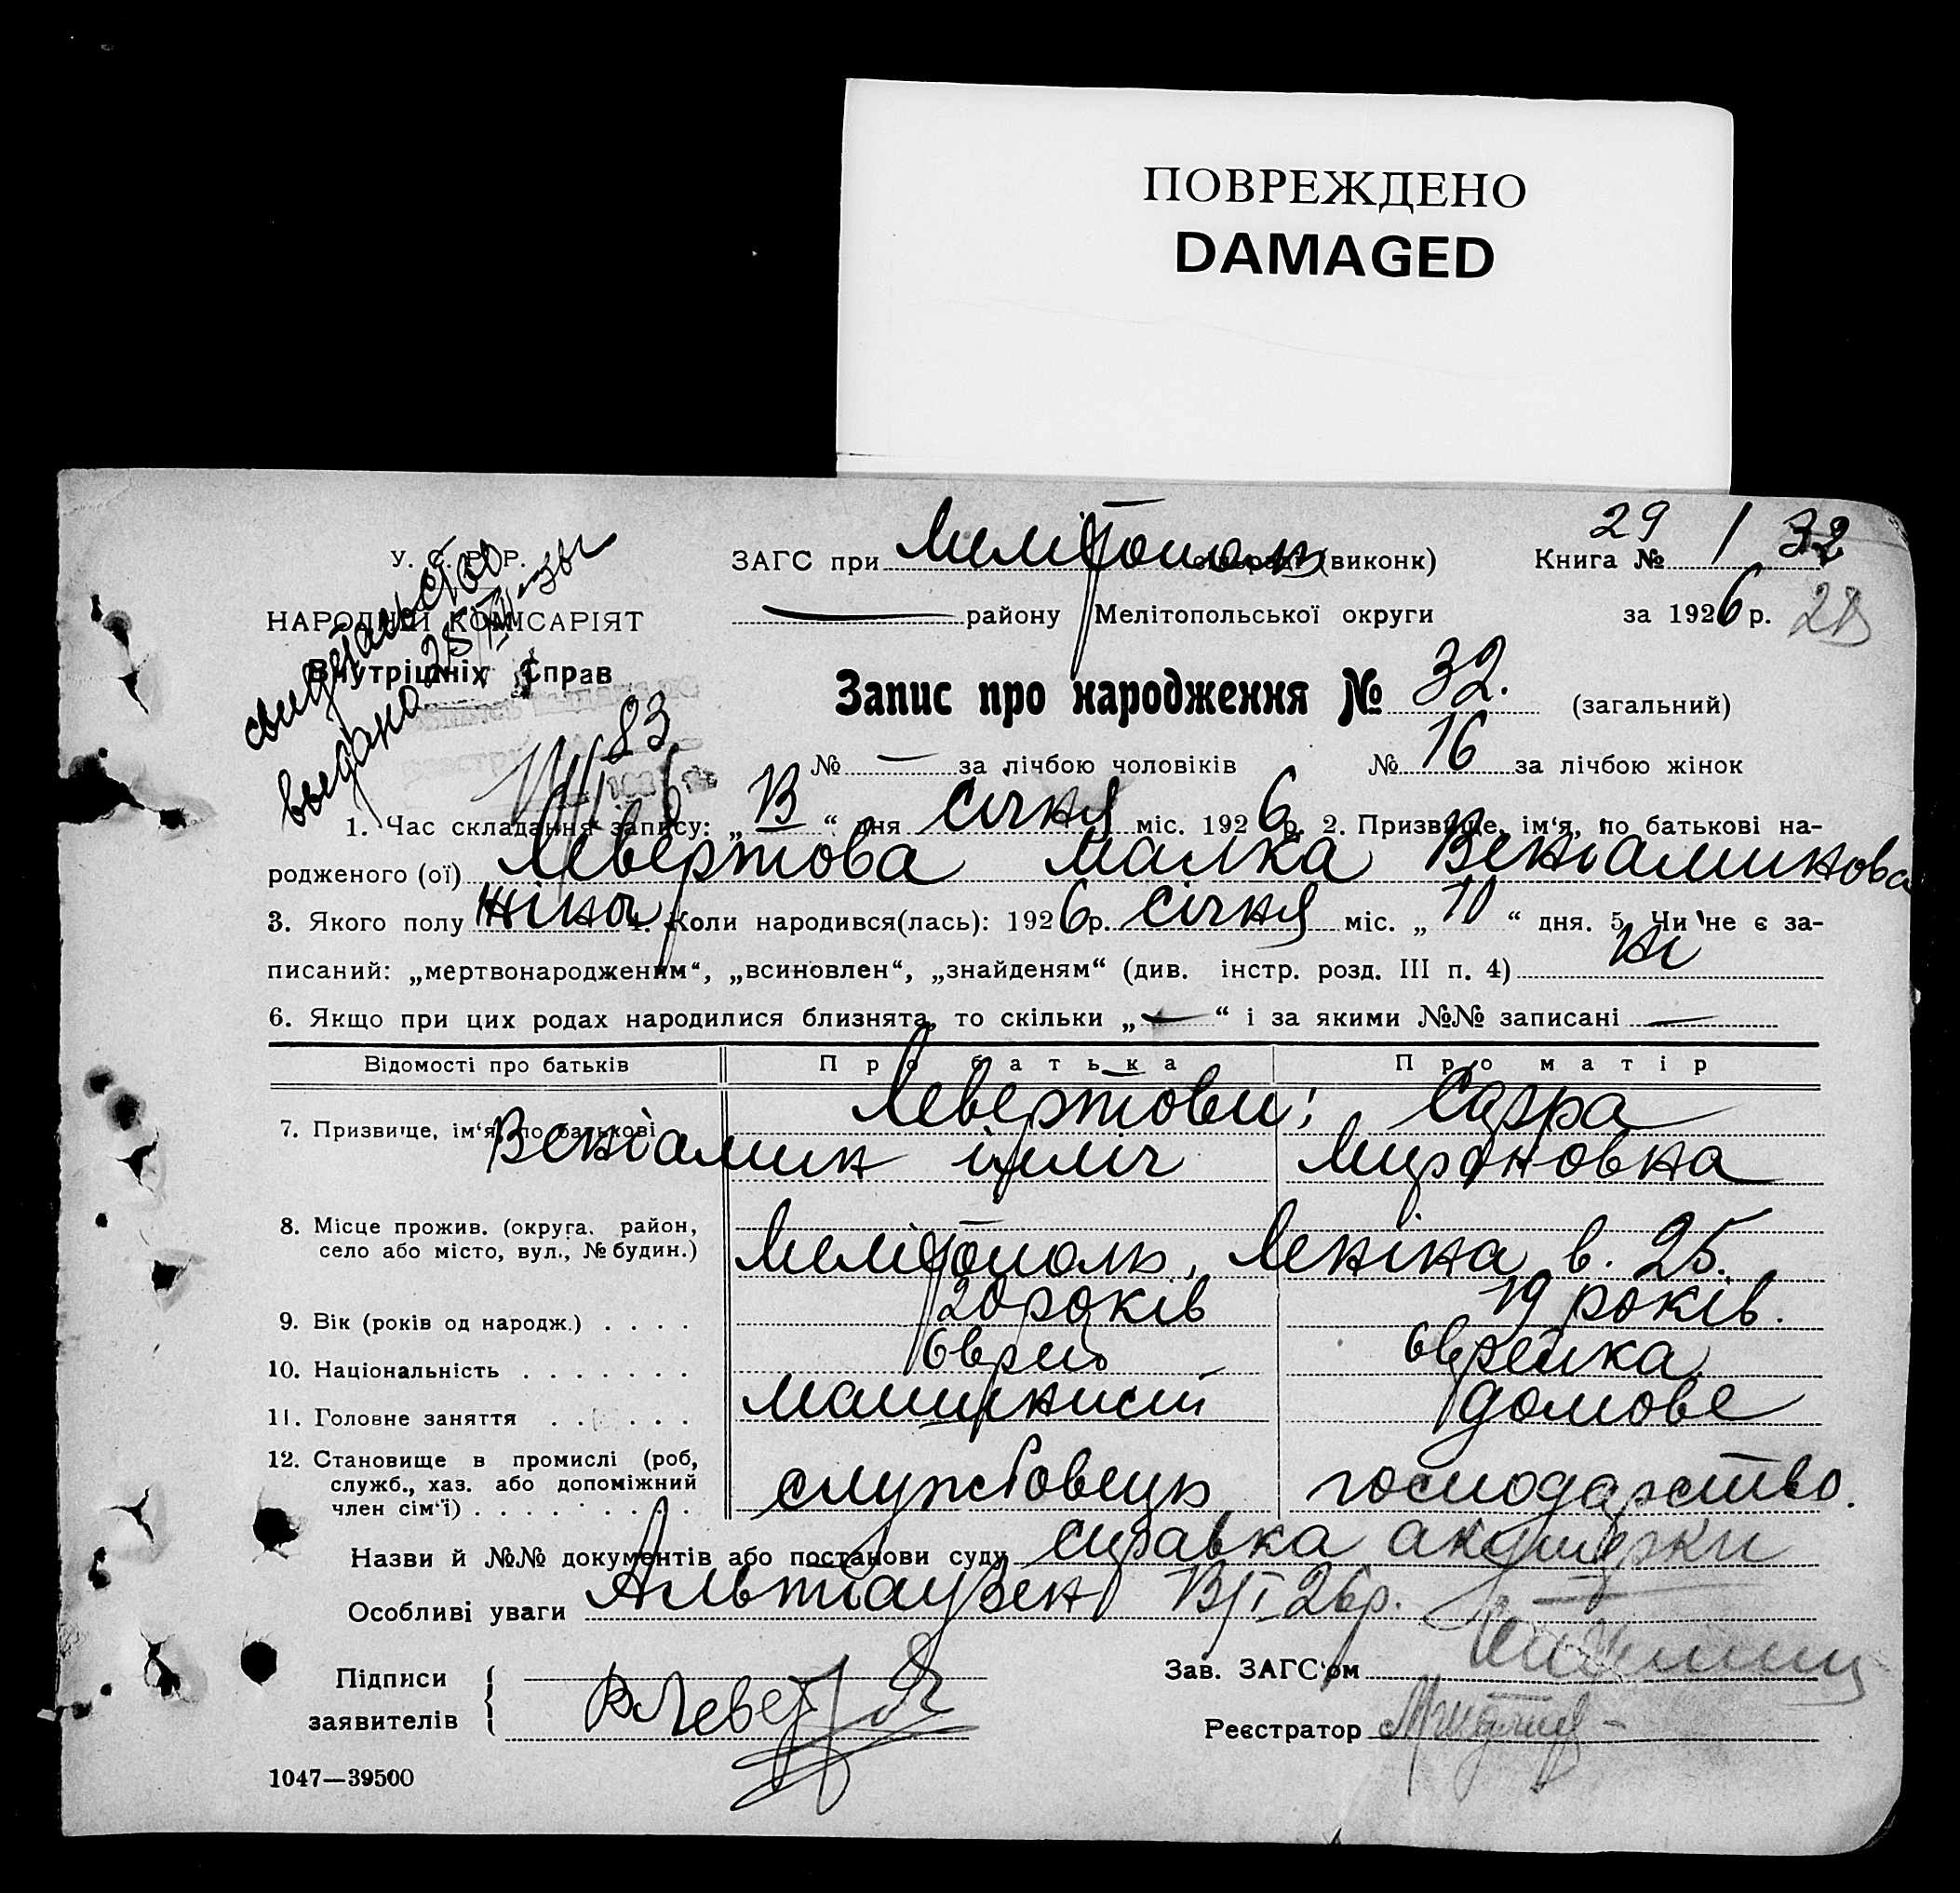 ПОВРЕЖДЕНО
DAMAGED
У. С. Р. Р.
НАРОДНІЙ КОМІСАРІЯТ
Внутрішніх Справ
свидетельство
выдано 25
83
ЗАГС при Мелітополь (виконк)
району Мелітопольської округи
29 1 32
Книга №
за 1926 р. 28
Запис про народження № 32. (загальний)
№ — за лічбою чоловіків № 16 за лічбою жінок
1. Час складання запису: „13“ дня січня міс. 1926 р. 2. Призвище, ім‘я, по батькові на-
родженого (ої) Левертова Малка Веніаминова
3. Якого полу жіноч 4. Коли народився(лась): 1926 р. січня міс. „10“ дня. 5. Чи не є за-
писаний: „мертвонародженим“, „всиновлен“, „знайденям“ (див. інстр. розд. III п. 4) ні
6. Якщо при цих родах народилися близнята, то скільки „—“ і за якими №№ записані —
Відомості про батьків Про батька Про матір
7. Призвище, ім‘я, по батькові Левертови; Сарра
Веніамин ілліч Мироновна
8. Місце прожив. (округа, район,
село або місто, вул., № будин.) Мелітополь, Леніна в. 25.
9. Вік (років од народж.) . . . . 20 років 19 років.
10. Національність . . . . . . . Єврей Єврейка
11. Головне заняття . . . . . машинист домове
12. Становище в промислі (роб,
служб., хаз. або допоміжний
член сім‘ї) . . . . . . . . службовець господарство.
Назви й №№ документів або постанови суду справка акушерки
Особливі уваги Альтгаузен 13/I 26 р.
Підписи
заявителів
В Леверт
Зав. ЗАГС‘ом
Реєстратор
1047—39500